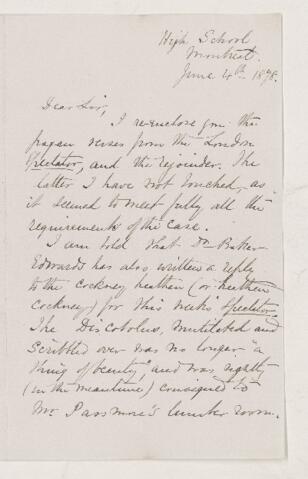 High School
Montreal.
June 4th 1878.
Dear Sir,
I re-enclose you the
pagan verses from the London
Spectator, and the rejoinder. The
latter I have not touched, as
it seemed to meet fully all the
requirements of the case.
I am told that Dr Baker
Edwards has also written a reply
to the cockney heathen (or heathen
cockney) for this week's Spectator.
The Discobolus, mutilated and
scribbled over was no longer "a
thing of beauty," and was rightly
(in the meantime) consigned to
Mr Passmore's lumber room.